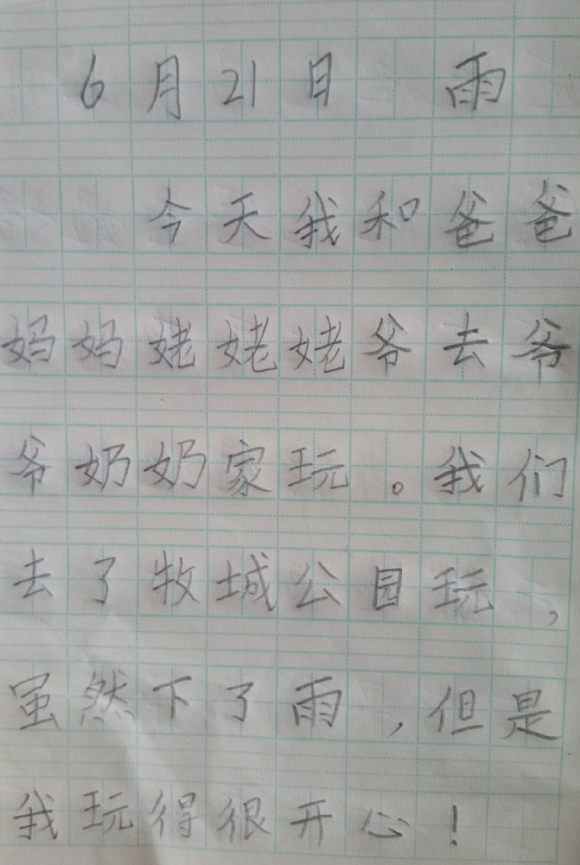 6月21日 雨
今天我和爸爸
妈妈姥姥姥爷去爷
爷奶奶家玩。我们
去了牧城公园玩,
虽然下了雨,但是
我玩得很开心!